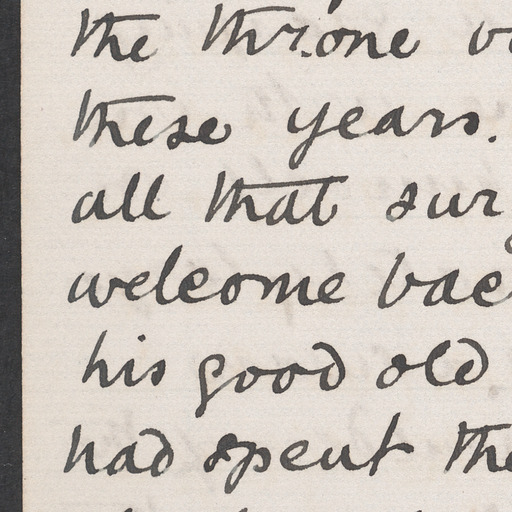 the throne
these years.
all that sur
welcome bac
his good old
had spent the